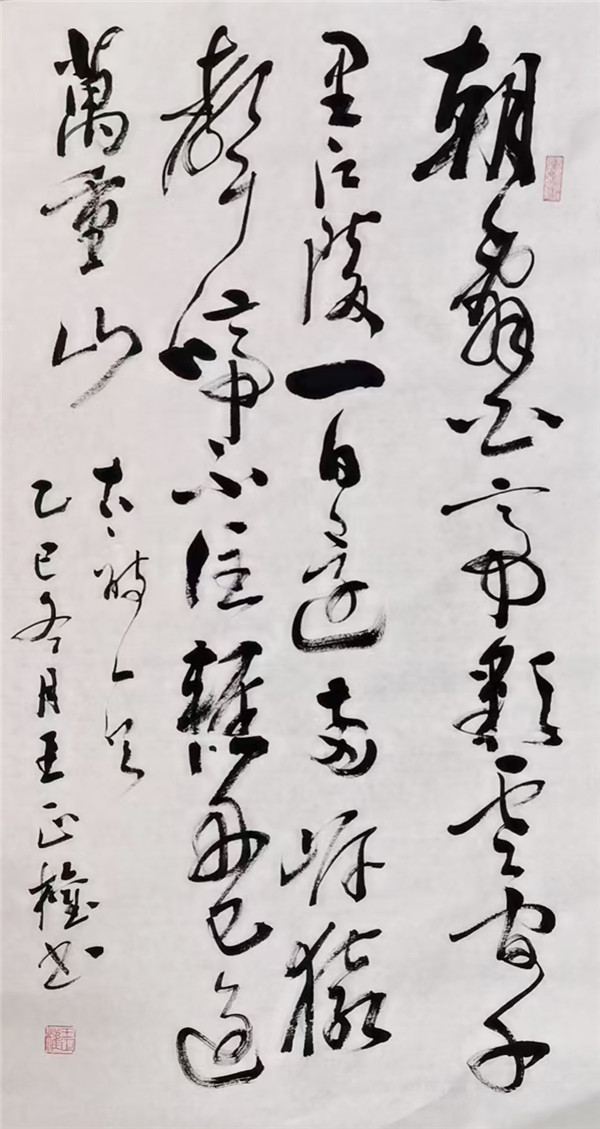 朝辭白帝彩雲間千
里江陵一日還兩岸猿
聲啼不住輕舟已過
萬重山
古詩一首
乙巳冬月王正權書